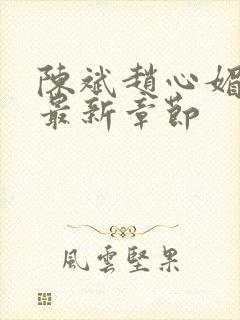 陳斌趙心媚
最新章節
風雲堅果